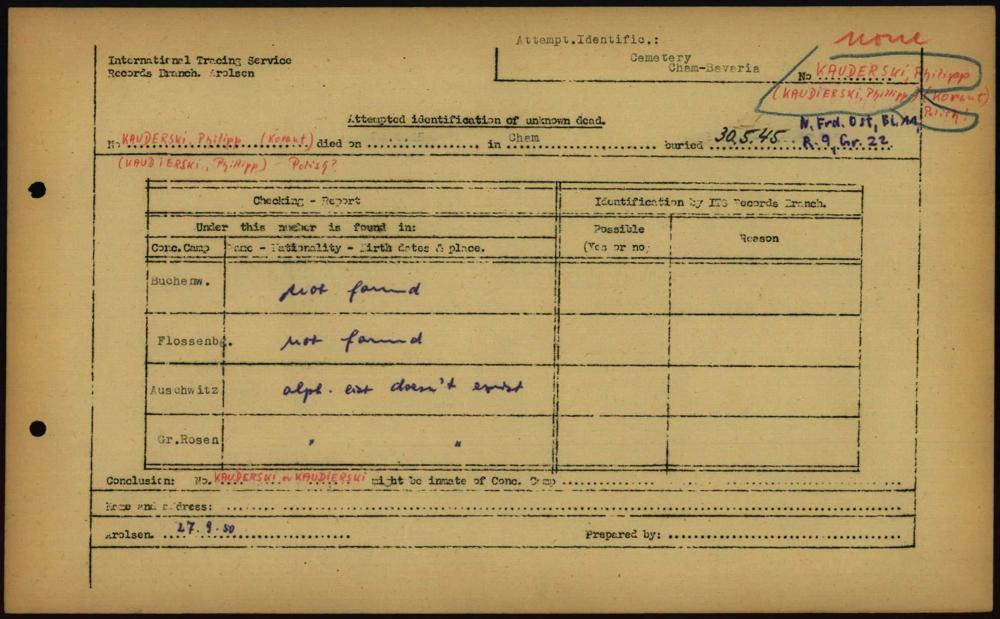 Attempt.Identific.:
none
International Tracing Service
Cemetery
Records Branch. Arolsen
Cham-Bavaria
No KAUDERSKI, Philipp
(KAUDIERSKI, Phillipp) (Korant)
Attempted identification of unknown dead.
N. Frd. Ost, Bl. 11,
No KAUDERSKI, Philipp (Korant) died on ........ in Cham ........ buried 30.5.45 R. 9, Gr. 22
(KAUDIERSKI, Phillipp) Polish?
Checking - Report
Identification by ITS Records Branch.
Under this number is found in:
Possible
Reason
Conc. Camp
Name - Nationality - Birth dates & place.
(Yes or no)
Buchenw.
not found
Flossenbg.
not found
Auschwitz
alph. list doesn't exist
Gr.Rosen
" "
Conclusion: No. KAUDERSKI or KAUDIERSKI might be inmate of Conc. Camp ........
Name and address: ........
Arolsen. 27.9.50
Prepared by: ........